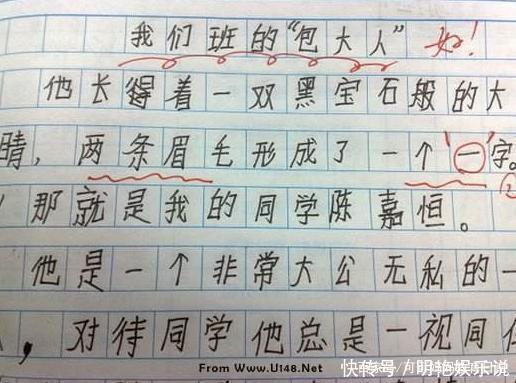 我们班的“包大人” 好!
他长得着一双黑宝石般的大
睛，两条眉毛形成了一个'一'字。
那就是我的同学陈嘉恒。
他是一个非常大公无私的一
，对待同学他总是一视同仁
From Www.U148.Net
快传号/明艳娱乐说